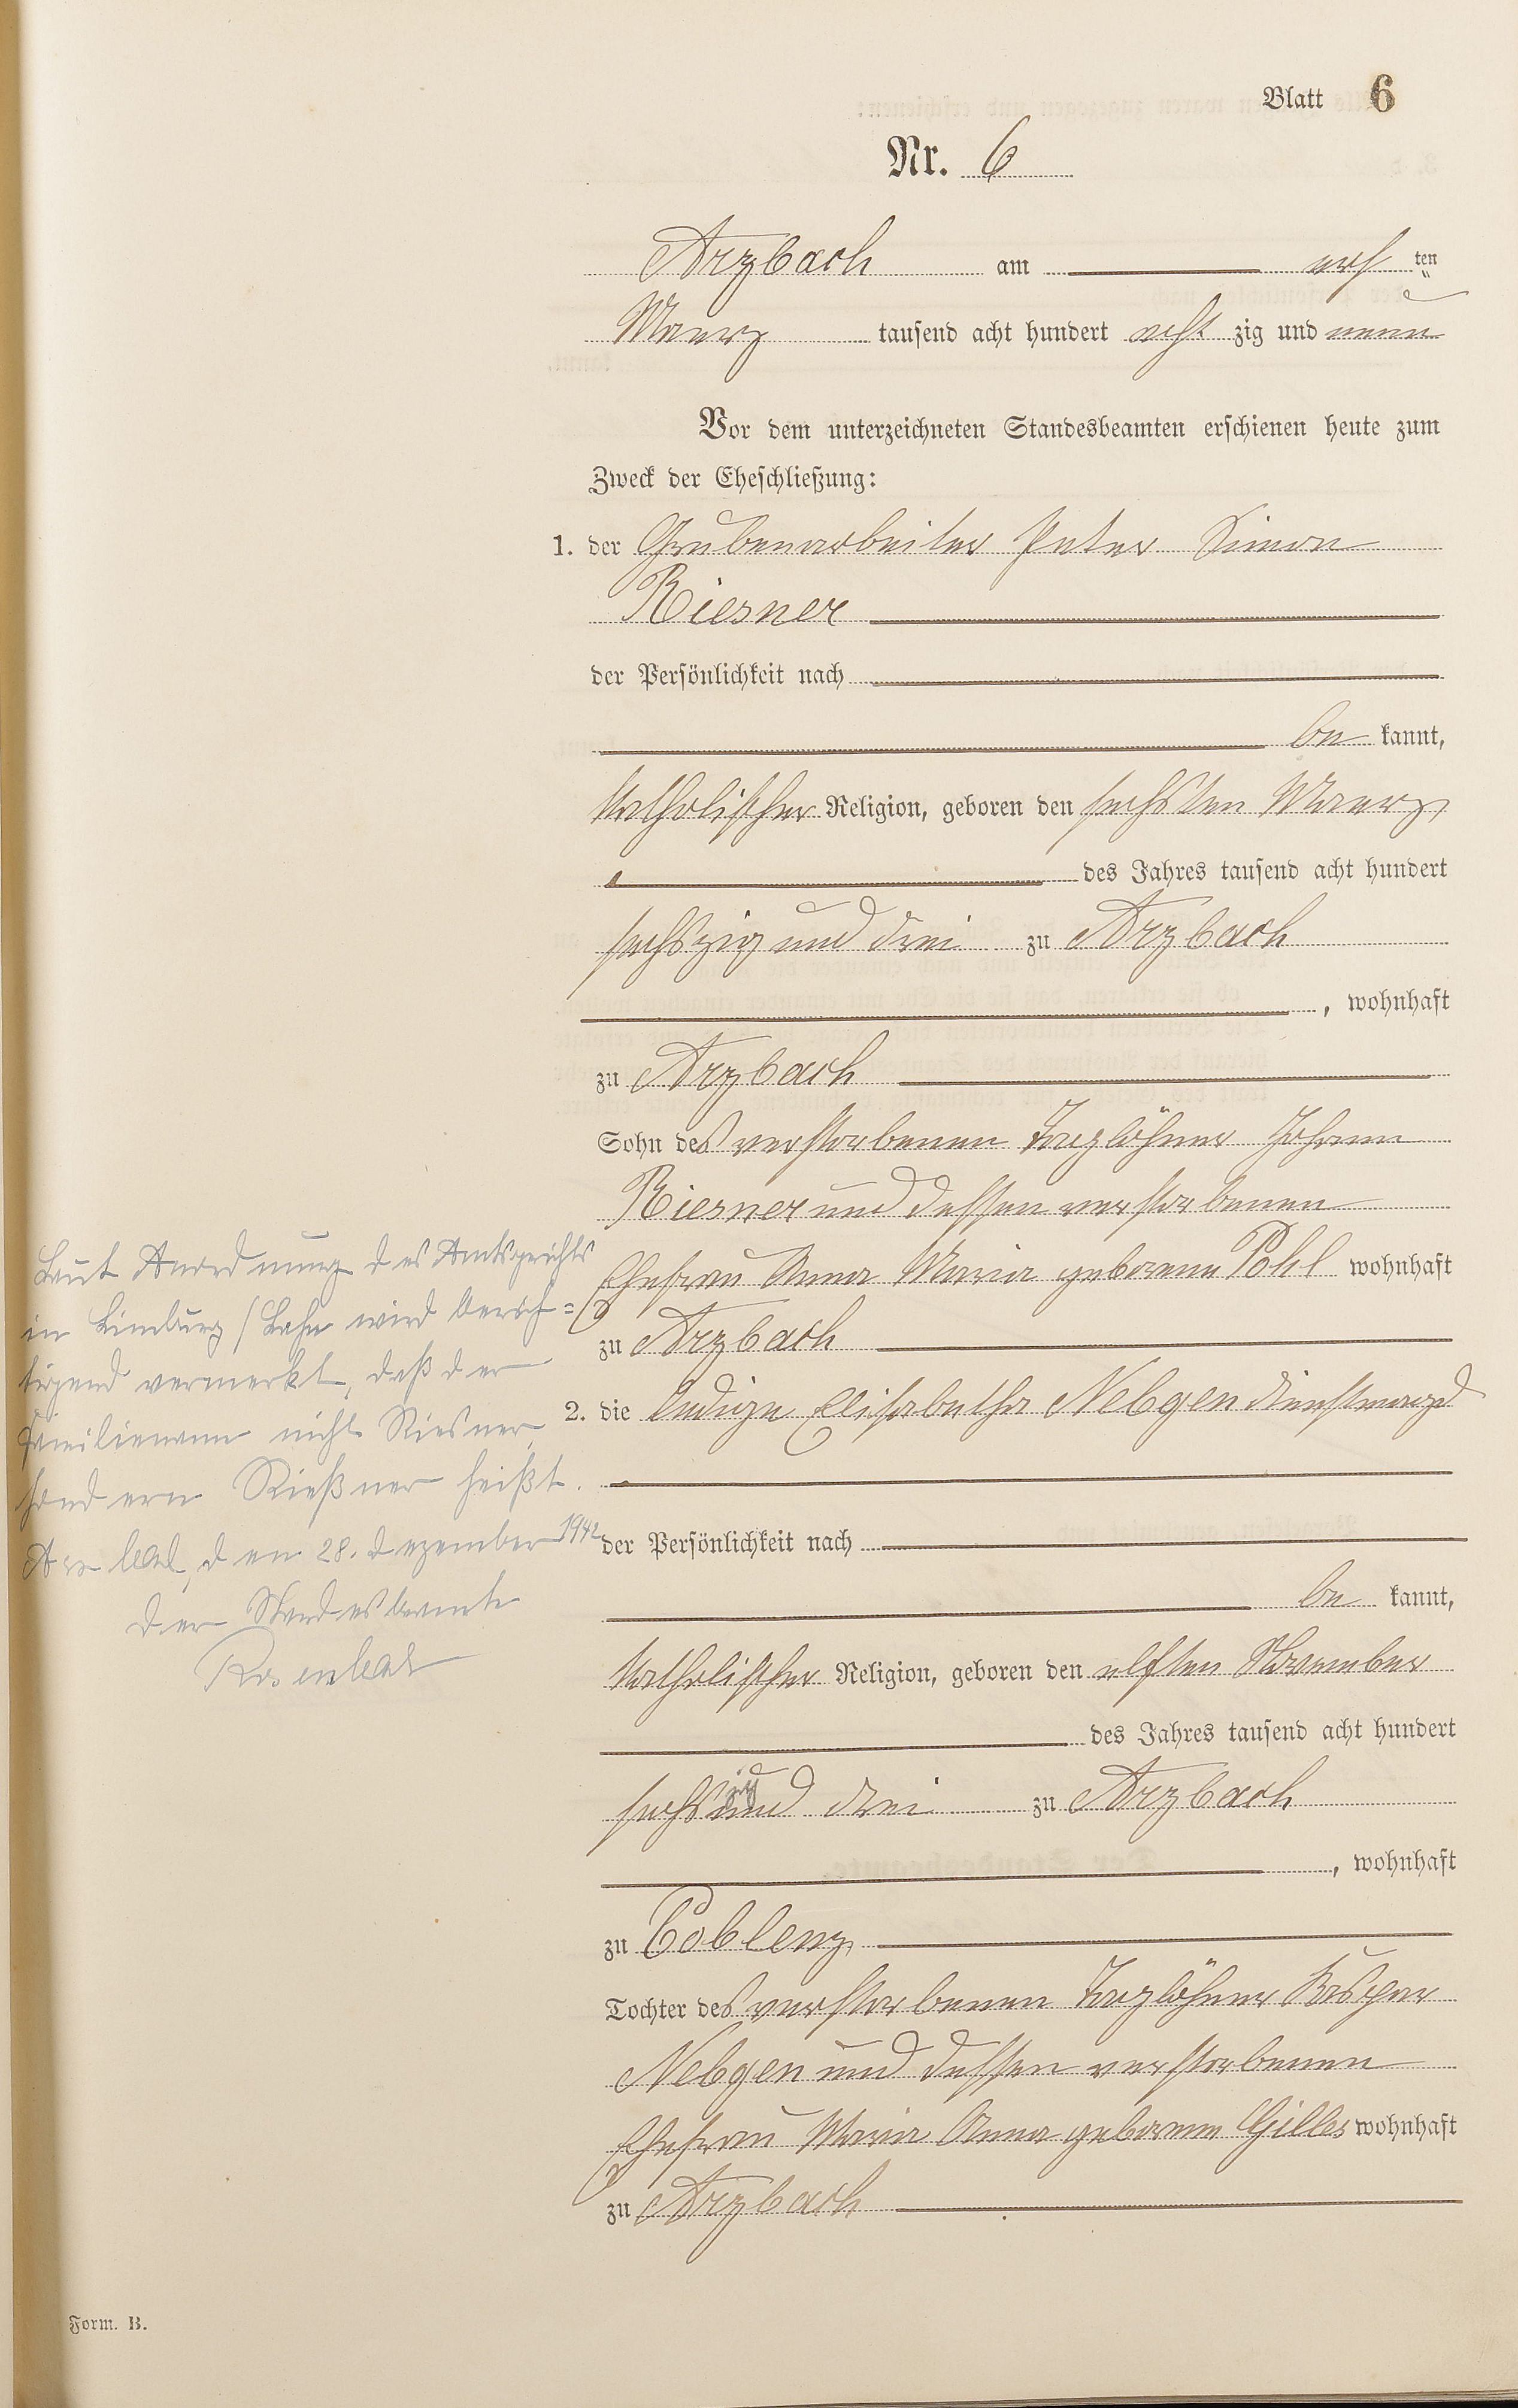 Blatt 6
Nr. 6
Arzbach am ten
Maerz tausend acht hundert acht zig und neun
Vor dem unterzeichneten Standesbeamten erschienen heute zum
Zweck der Eheschließung:
1. der Grubenarbeiter Peter Simon
Riesner
der Persönlichkeit nach
be kannt,
katholischer Religion, geboren den sechsten Maerz
des Jahres tausend acht hundert
sechszig und drei zu Arzbach
, wohnhaft
zu Arzbach
Sohn des verstorbenen Taglöhner Johann
Riesner und dessen verstorbenen
Ehefrau Anna Maria geborene Pohl wohnhaft
zu Arzbach
2. die ledige Elisabetha Nebgen Dienstmagd
der Persönlichkeit nach
be kannt,
katholischer Religion, geboren den elften November
des Jahres tausend acht hundert
sechszig und drei zu Arzbach
, wohnhaft
zu Coblenz
Tochter des verstorbenen Taglöhner Kaspar
Nebgen und dessen verstorbenen
Ehefrau Maria Anna geborene Gilles wohnhaft
zu Arzbach
Laut Anordnung des Amtsgerichts
in Limburg/Lahn wird berich=
tigend vermerkt, daß der
Familienname nicht Riesner,
sondern Rießner heißt.
Arzbach, den 28. Dezember 1942
Der Standesbeamte
Form. B.